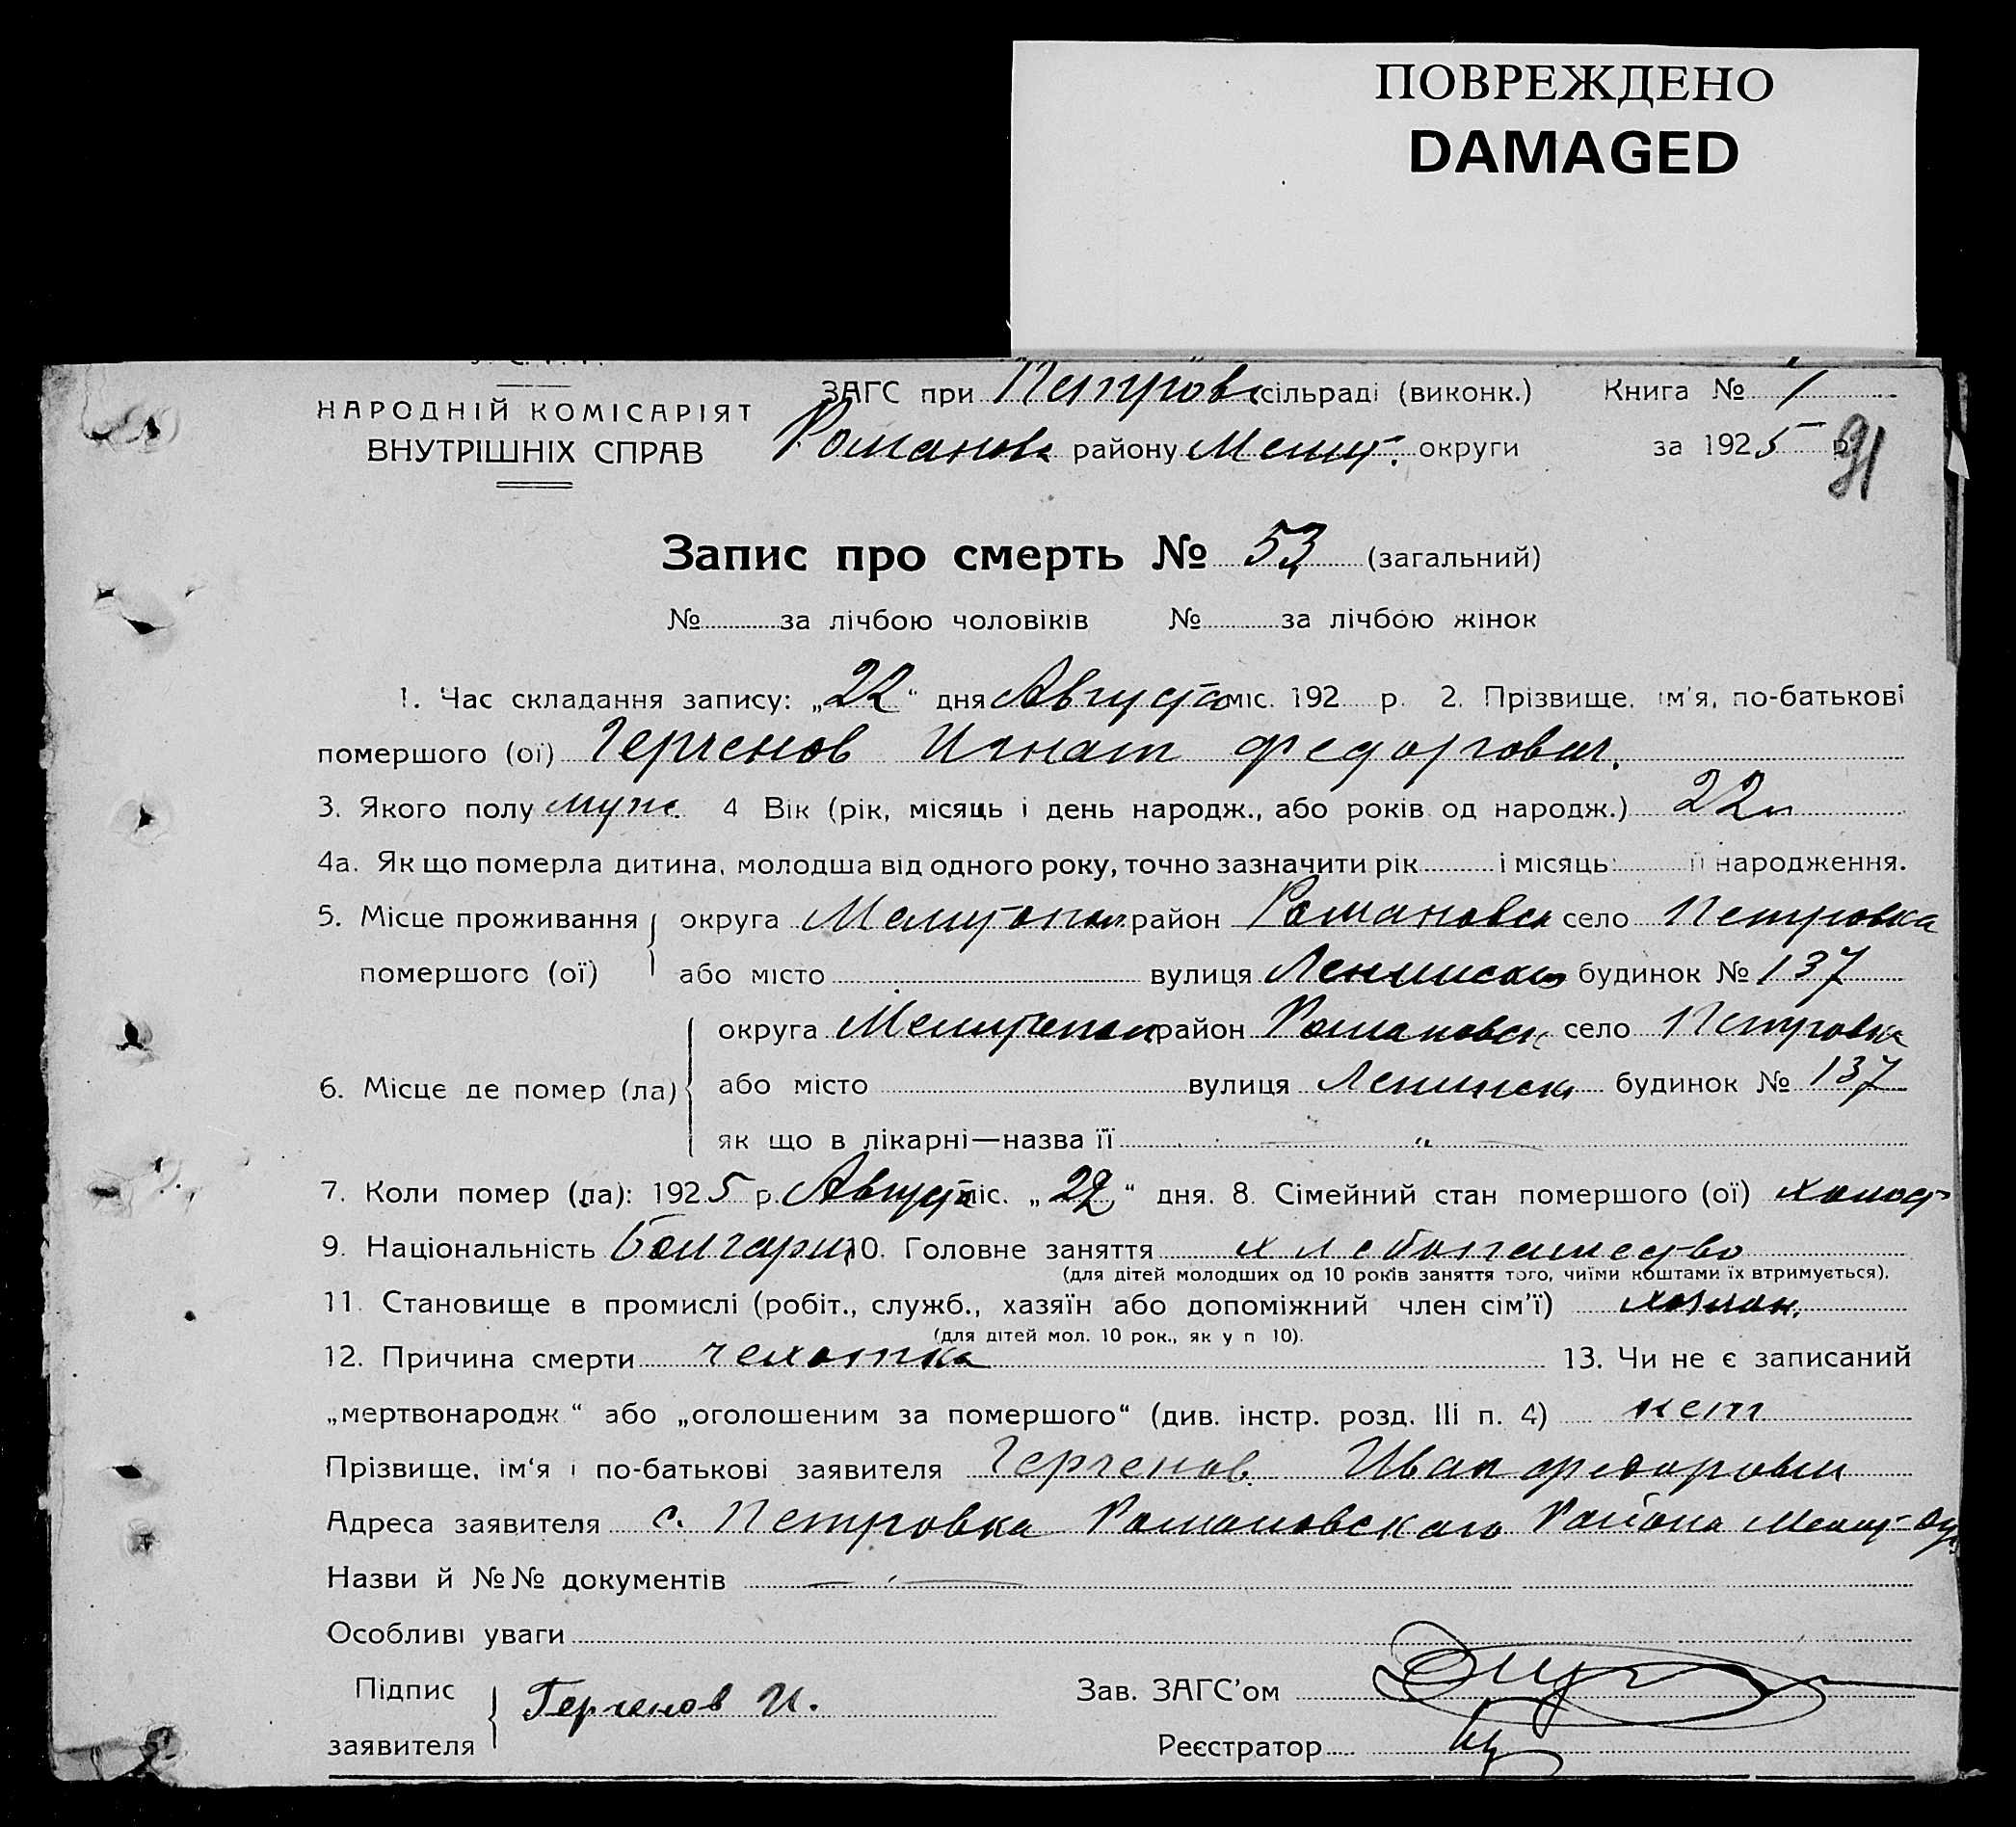 ПОВРЕЖДЕНО
DAMAGED
ЗАГС при Петров сільраді (виконк.) Книга № 1
НАРОДНІЙ КОМІСАРІЯТ
ВНУТРІШНІХ СПРАВ Романов району Мелит. округи за 1925 р
91
Запис про смерть № 53 (загальний)
№ за лічбою чоловіків № за лічбою жінок
1. Час складання запису: „22“ дня Августа міс. 192 р. 2. Прізвище, ім'я, по-батькові
помершого (ої) Герченов Игнат Федорович.
3. Якого полу муж. 4 Вік (рік, місяць і день народж., або років од народж.) 22
4а. Як що померла дитина, молодша від одного року, точно зазначити рік і місяць її народження.
5. Місце проживання округа Мелитопол. район Романовск село Петровка
помершого (ої) або місто вулиця Ленинская будинок № 137
округа Мелитопол район Романовск село Петровка
6. Місце де помер (ла) або місто вулиця Ленинск будинок № 137
як що в лікарні—назва її „
7. Коли помер (ла): 1925 р. Августа міс. „22“ дня. 8. Сімейний стан помершого (ої) холост
9. Національність Болгарин 10. Головне заняття хлебопашество
(для дітей молодших од 10 років заняття того, чиїми коштами їх втримується).
11. Становище в промислі (робіт., служб., хазяїн або допоміжний член сім'ї) хозяин.
(для дітей мол. 10 рок., як у п 10).
12. Причина смерти чехотка 13. Чи не є записаний
„мертвонародж“ або „оголошеним за помершого“ (див. інстр. розд. III п. 4) нет
Прізвище, ім'я і по-батькові заявителя Герченов Иван Федорович
Адреса заявителя с. Петровка Романовскаго Района Мелит-
Назви й №№ документів —
Особливі уваги
Підпис Герченов И. Зав. ЗАГС'ом
заявителя Реєстратор